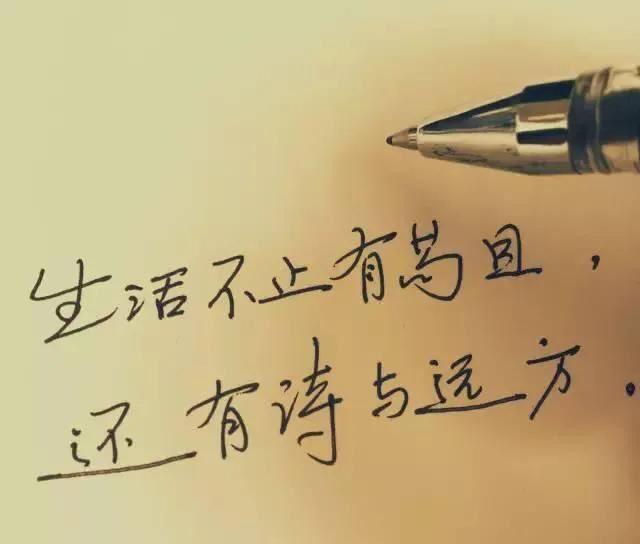 生活不止有苟且,
还有诗与远方.